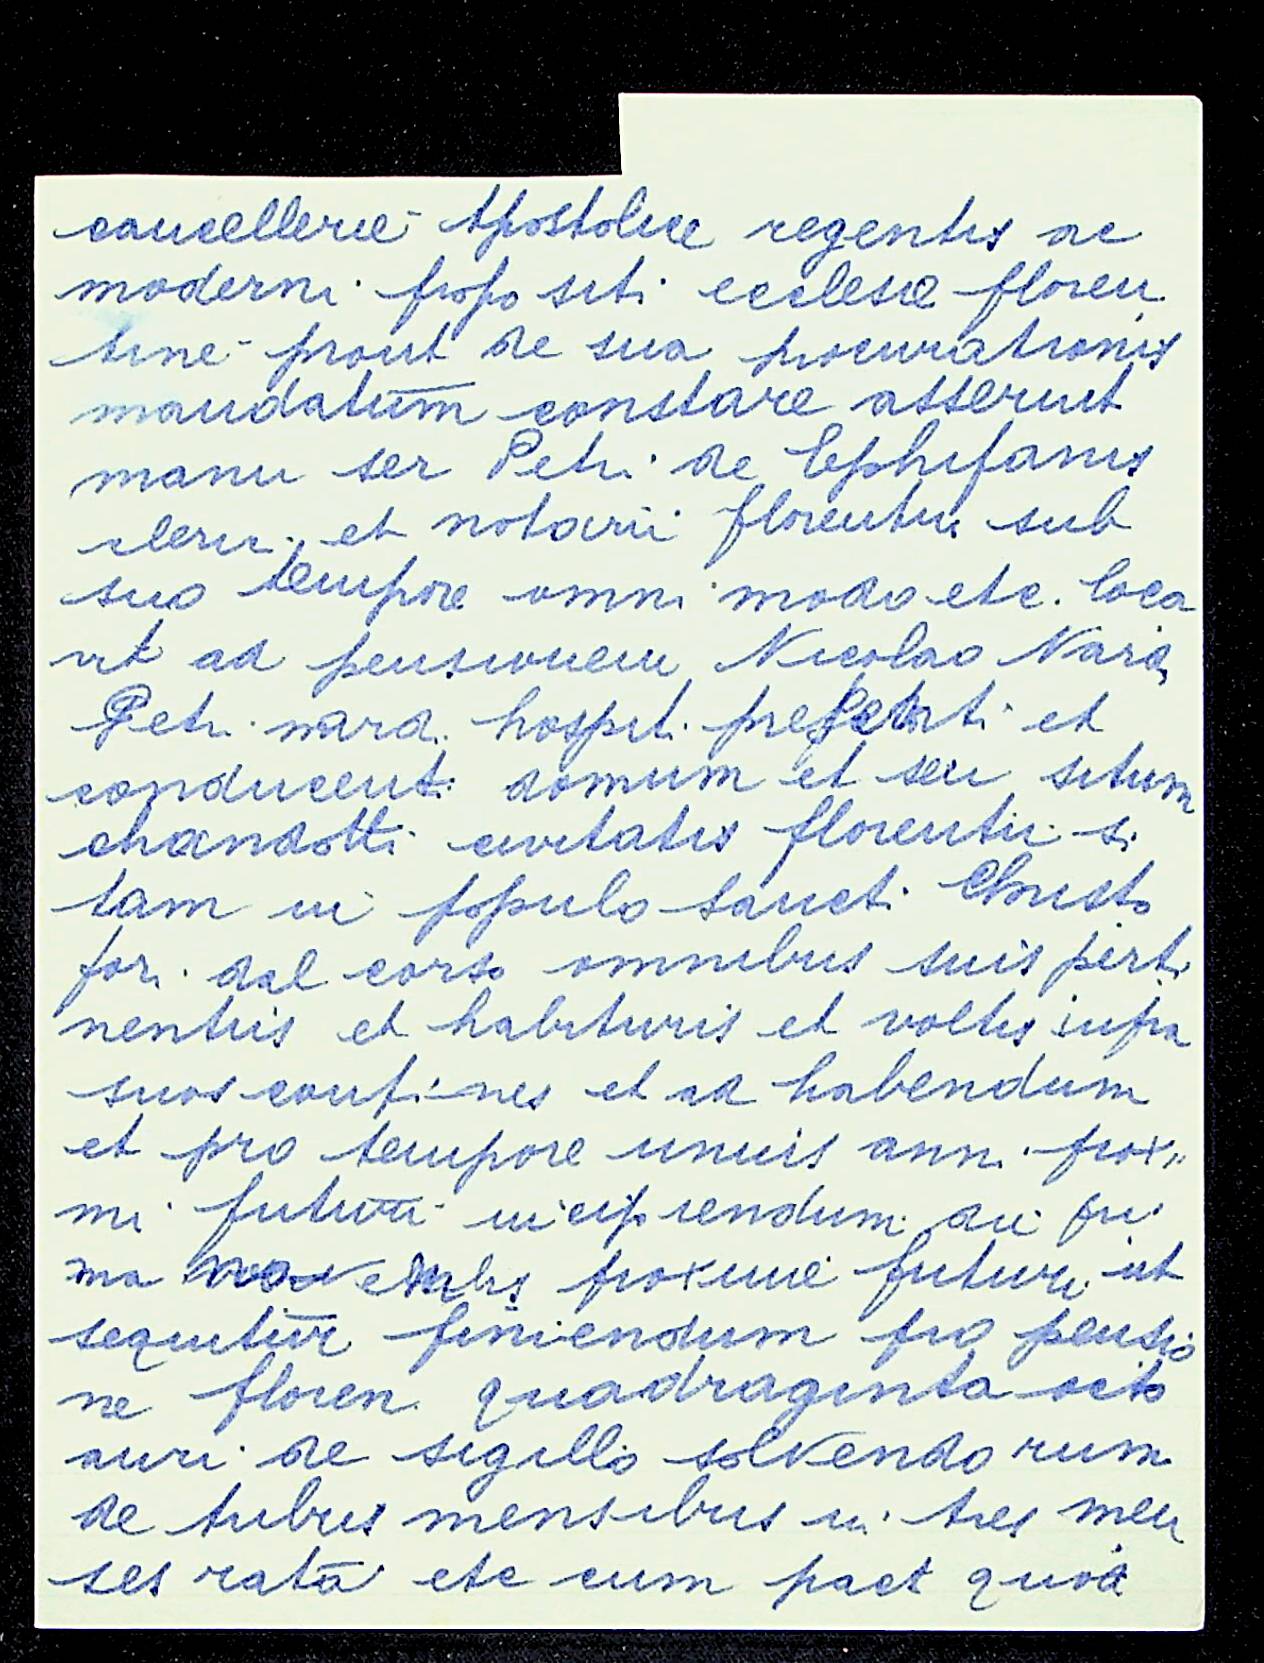 cancellerie Apostolice regentis ac
moderni propositi ecclesie floren
tine prout de sua procurationis
mandatum constare asserunt
manu ser Petri de Ephifanis
cleri et notarii florentin sub
suo tempore omni modo etc. loca
vit ad pensionem Nicolao Nard
Petri nard hospiti presenti et
conducenti domum et seu situm
chandotti civitatis florentie si
tam in populo Sancti Christo
fori dal corso omnibus suis perti
nentiis et habituris et voltis infra
suos confines et ad habendum
et pro tempore unius anni proxi
mi futuri incipiendum die pri
ma novembris proxime futuri ut
sequitur finiendum pro pensio
ne floren. quadraginta octo
auri de sigillo solvendorum
de tribus mensibus in tres men
ses rata etc cum pact quod